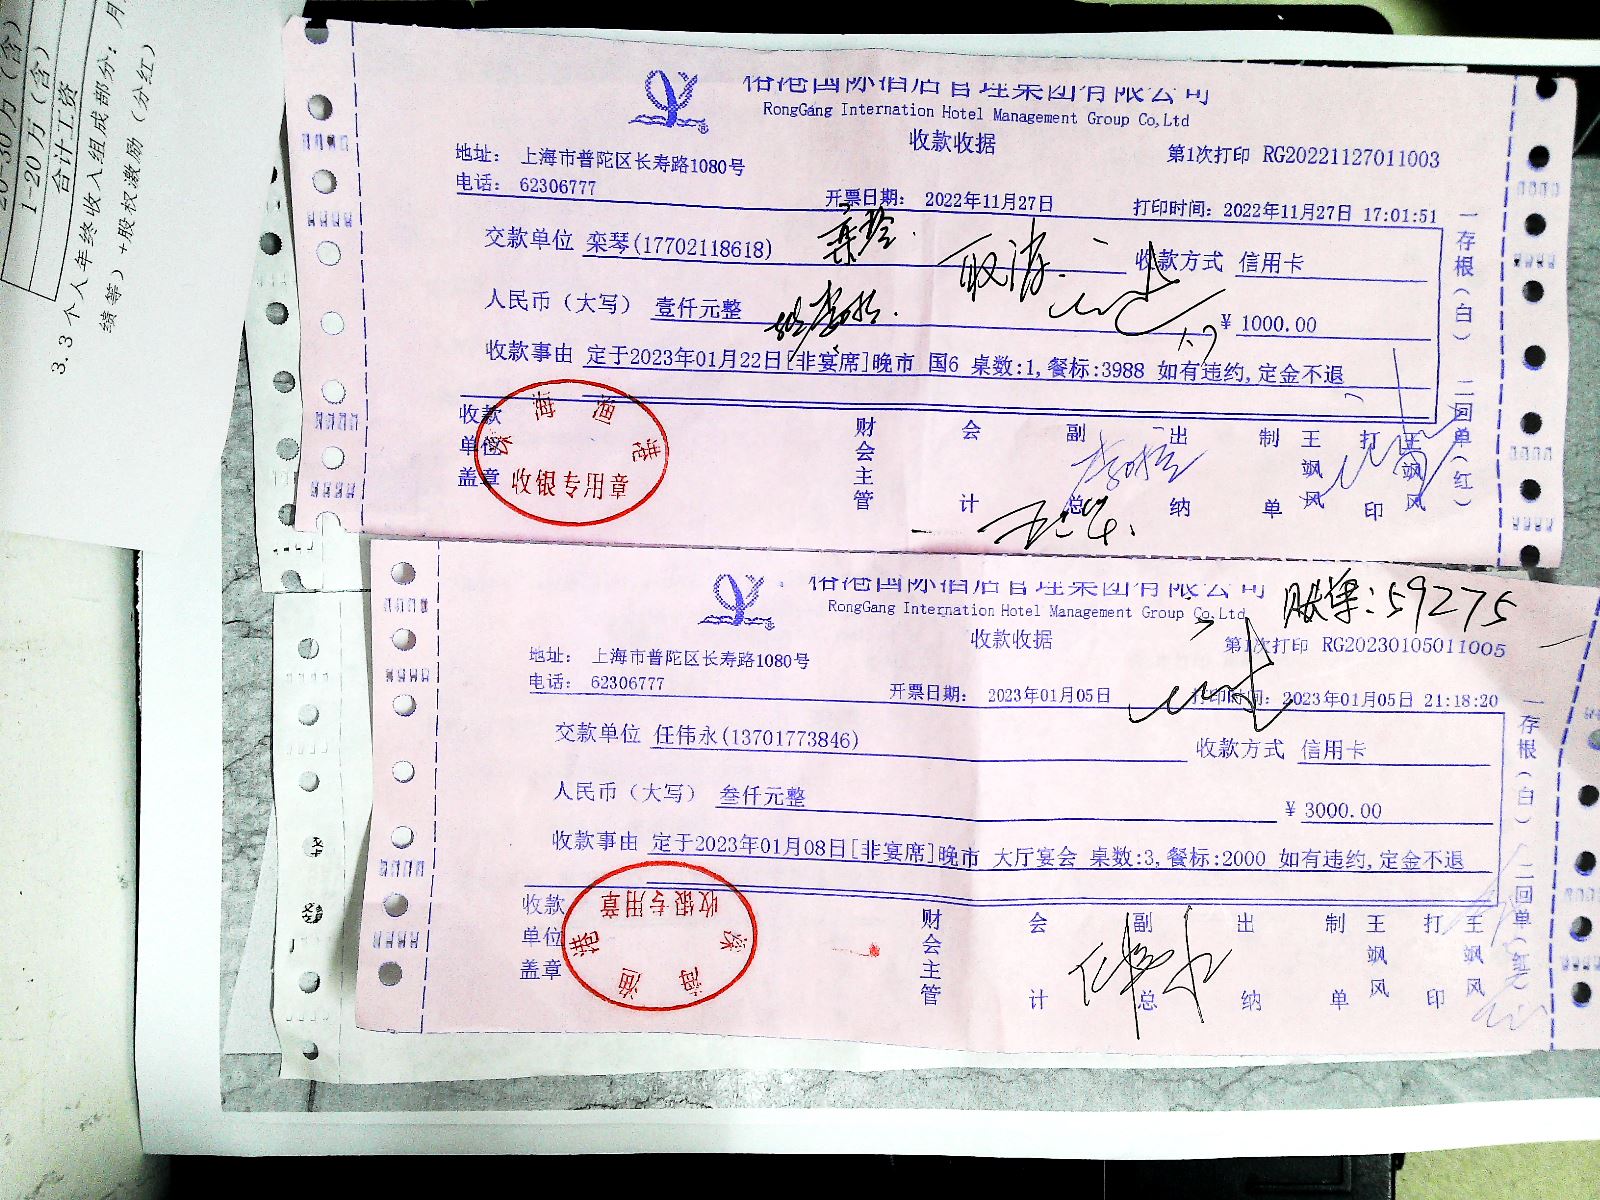 20-30万（含）
1-20万（含）
合计工资
3.3 个人年终收入组成部分：月
绩等）+股权激励（分红）
裕港国际酒店管理集团有限公司
RongGang Internation Hotel Management Group Co,Ltd
收款收据
第1次打印 RG20221127011003
地址： 上海市普陀区长寿路1080号
电话： 62306777
开票日期： 2022年11月27日
打印时间：2022年11月27日 17:01:51
交款单位 栾琴(17702118618)
栾琴.
取消.
收款方式 信用卡
人民币（大写） 壹仟元整
￥ 1000.00
收款事由 定于2023年01月22日[非宴席]晚市 国6 桌数:1,餐标:3988 如有违约,定金不退
收款单位盖章
深海渔港
收银专用章
财会主管
会计
副总
出纳
制单
王飒风
打印
王飒风
一存根（白） 二回单（红）
裕港国际酒店管理集团有限公司
RongGang Internation Hotel Management Group Co,Ltd
账单:59275
收款收据
第1次打印 RG20230105011005
地址： 上海市普陀区长寿路1080号
电话： 62306777
开票日期： 2023年01月05日
打印时间：2023年01月05日 21:18:20
交款单位 任伟永(13701773846)
收款方式 信用卡
人民币（大写） 叁仟元整
￥ 3000.00
收款事由 定于2023年01月08日[非宴席]晚市 大厅宴会 桌数:3,餐标:2000 如有违约,定金不退
收款单位盖章
深海渔港
收银专用章
财会主管
会计
副总
出纳
制单
王飒风
打印
王飒风
一存根（白） 二回单（红）